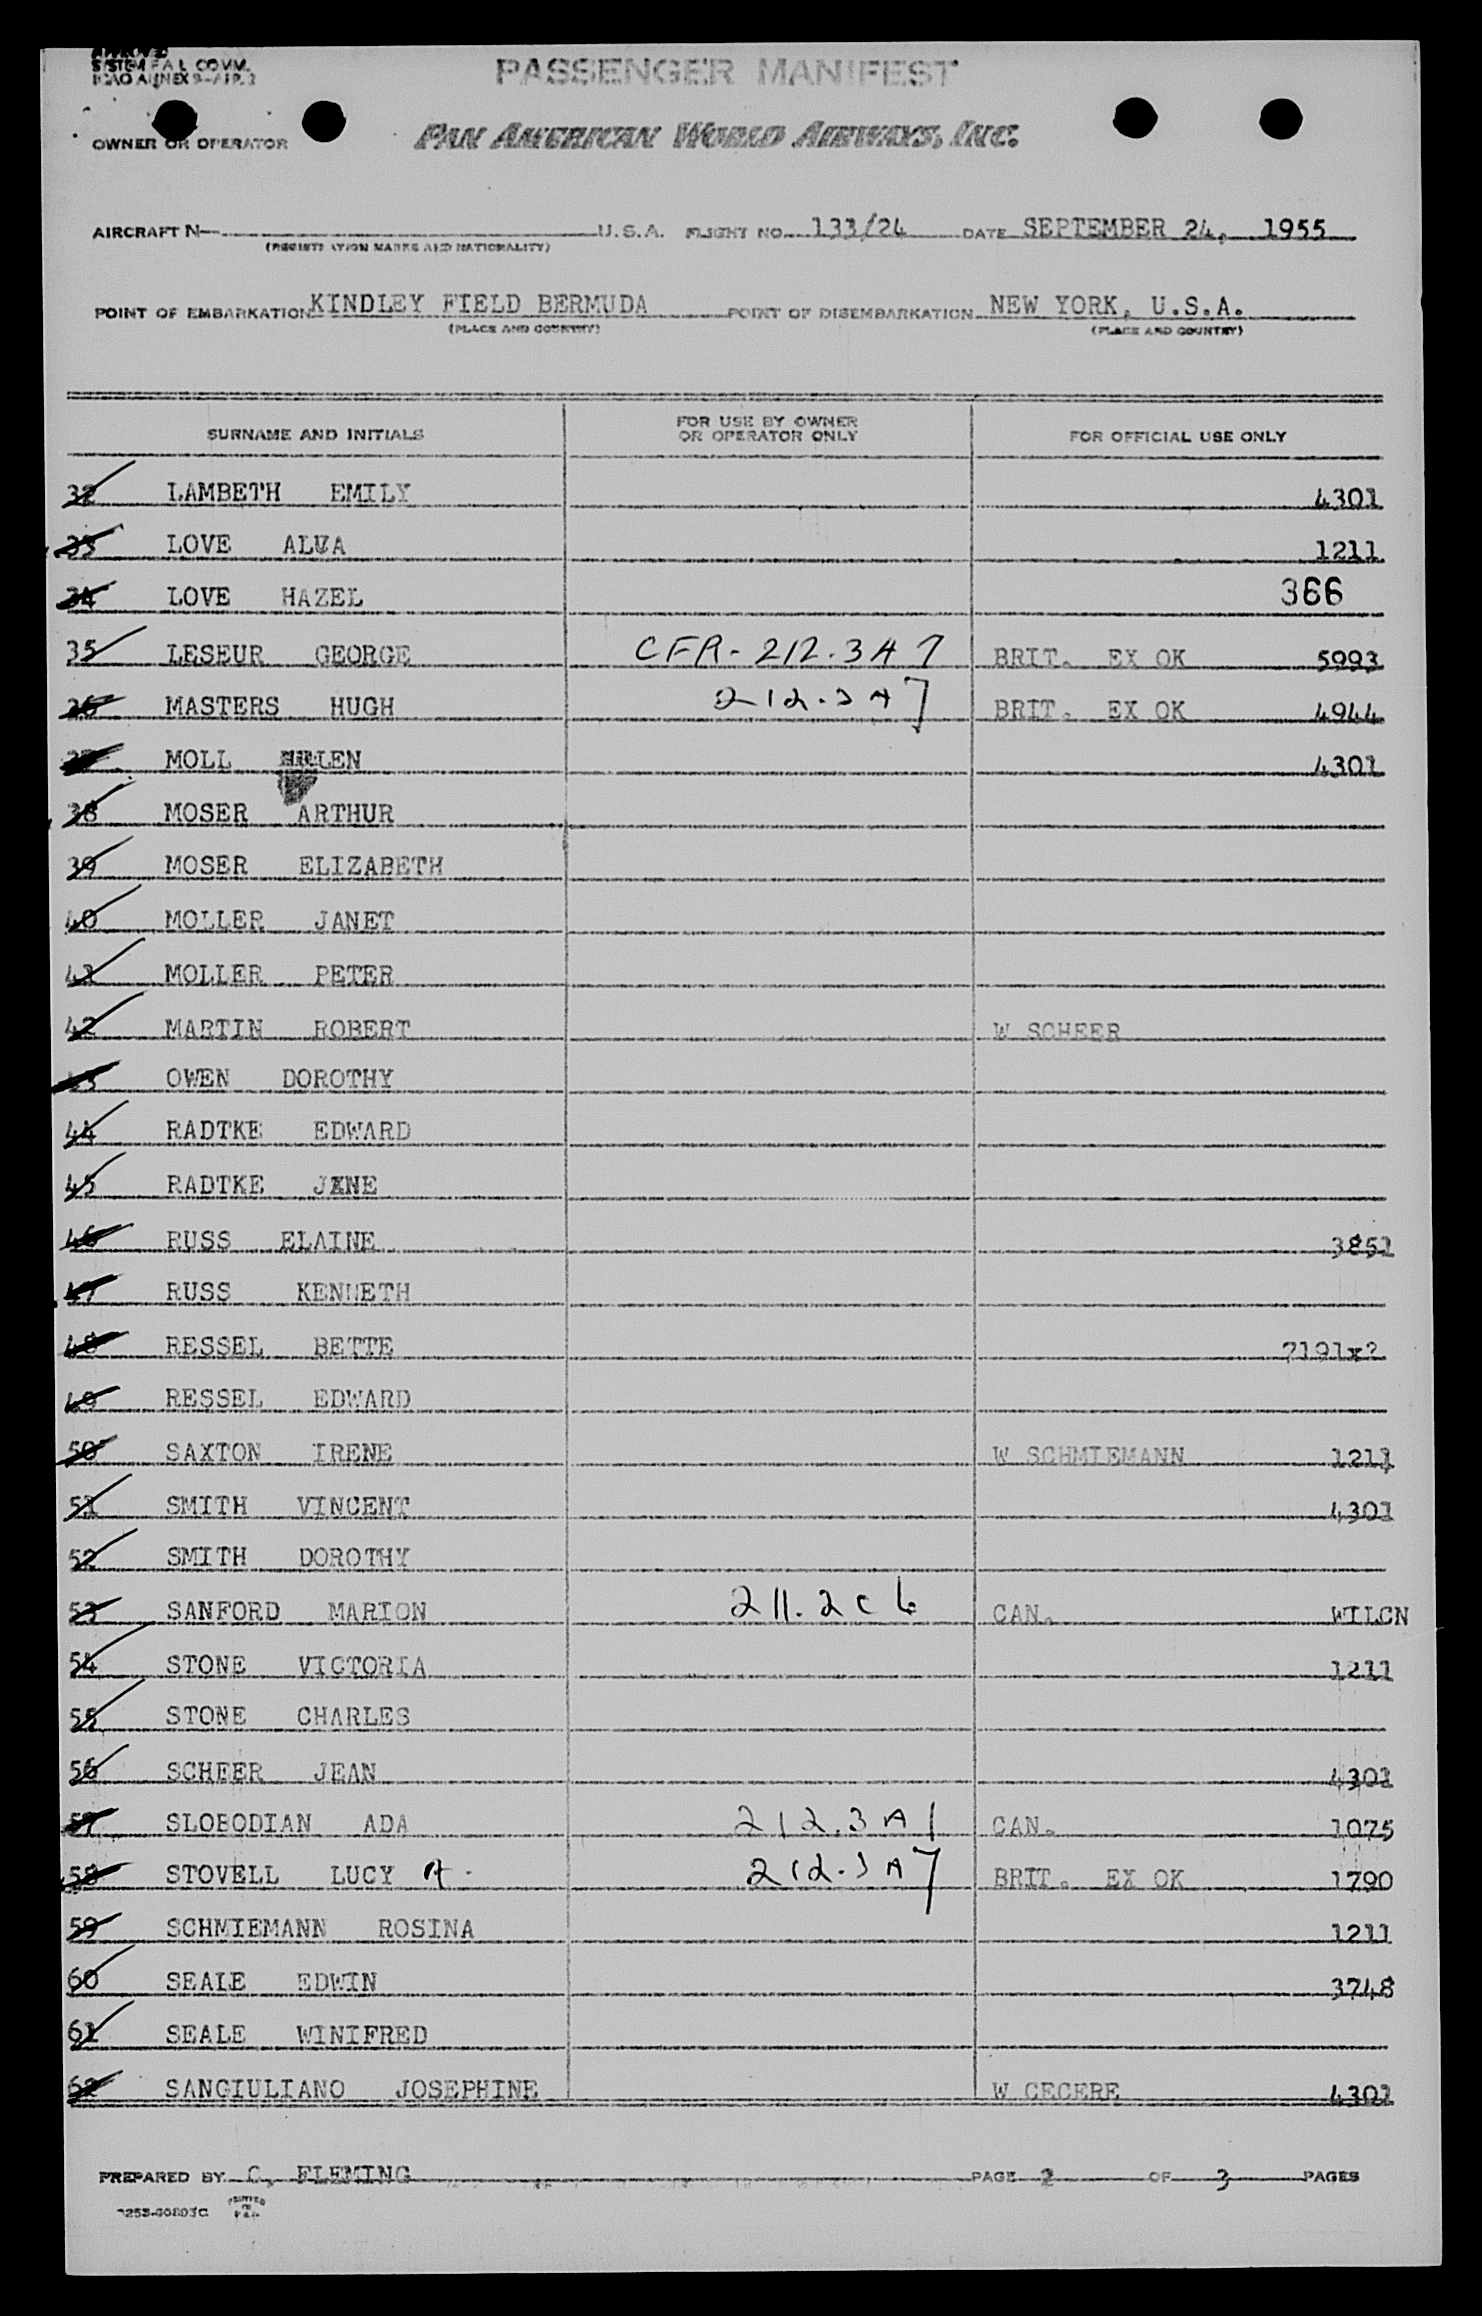 APPROVED
SYSTEM F A L COMM.
ICAO ANNEX 9-APP. 2
PASSENGER MANIFEST
OWNER OR OPERATOR PAN AMERICAN WORLD AIRWAYS, INC.
AIRCRAFT N- U.S.A. FLIGHT NO. 133/24 DATE SEPTEMBER 24, 1955
(REGISTRATION MARKS AND NATIONALITY)
POINT OF EMBARKATION KINDLEY FIELD BERMUDA POINT OF DISEMBARKATION NEW YORK, U.S.A.
(PLACE AND COUNTRY) (PLACE AND COUNTRY)
SURNAME AND INITIALS FOR USE BY OWNER OR OPERATOR ONLY FOR OFFICIAL USE ONLY
32 LAMBETH EMILY 4301
33 LOVE ALVA 1211
34 LOVE HAZEL 366
35 LESEUR GEORGE CFR-212.3A7 BRIT. EX OK 5993
36 MASTERS HUGH 212.3A7 BRIT. EX OK 4944
37 MOLL HELEN 4301
38 MOSER ARTHUR
39 MOSER ELIZABETH
40 MOLLER JANET
41 MOLLER PETER
42 MARTIN ROBERT W SCHEER
43 OWEN DOROTHY
44 RADTKE EDWARD
45 RADTKE JANE
46 RUSS ELAINE 3851
47 RUSS KENNETH
48 RESSEL BETTE 7191x2
49 RESSEL EDWARD
50 SAXTON IRENE W SCHMIEMANN 1211
51 SMITH VINCENT 4301
52 SMITH DOROTHY
53 SANFORD MARION 211.2c6 CAN. WILCN
54 STONE VICTORIA 1211
55 STONE CHARLES
56 SCHEER JEAN 4301
57 SLOBODIAN ADA 212.3A1 CAN. 1075
58 STOVELL LUCY A. 212.3A7 BRIT. EX OK 1790
59 SCHMIEMANN ROSINA 1211
60 SEALE EDWIN 3748
61 SEALE WINIFRED
62 SANGIULIANO JOSEPHINE W CECERE 4301
PREPARED BY C. FLEMING PAGE 2 OF 3 PAGES
PRINTED IN U.S.A.